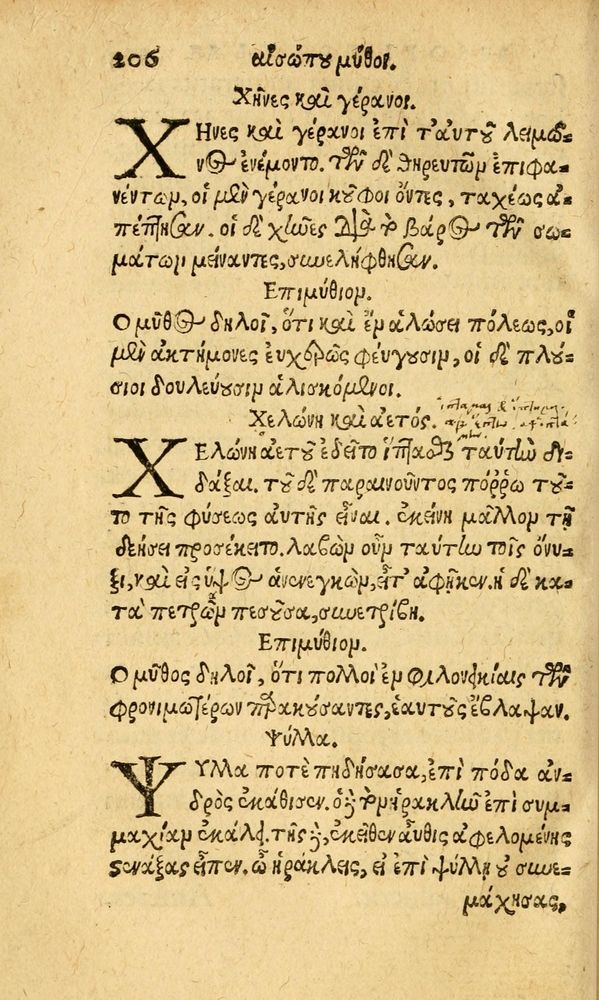 206 αἰσώπου μῦθοι.
Χῆνες καὶ γέρανοι.
ΧΗνες καὶ γέρανοι ἐπὶ ταυτοῦ λειμῶ-
νος ἐνέμοντο. τῶν δὲ θηρευτῶν ἐπιφα-
νέντων, οἱ μὲν γέρανοι κοῦφοι ὄντες, ταχέως ἀ-
πέπτησαν. οἱ δὲ χῆνες διὰ τὸ βάρος τῶν σω-
μάτων μείναντες, συνελήφθησαν.
Επιμύθιον.
Ο μῦθος δηλοῖ, ὅτι καὶ ἐν ἁλώσει πόλεως, οἱ
μὲν ἀκτήμονες εὐχερῶς φεύγουσιν, οἱ δὲ πλού-
σιοι δουλεύουσιν ἁλισκόμενοι.
Χελώνη καὶ ἀετός.
ΧΕλώνη ἀετοῦ ἐδεῖτο ἵπτασθαι ταύτην δι-
δάξαι. τοῦ δὲ παραινοῦντος πόῤῥω τοῦ-
το τῆς φύσεως αὐτῆς εἶναι. ἐκείνη μᾶλλον τῇ
δεήσει προσέκειτο. λαβὼν οὖν ταύτην τοῖς ὄνυ-
ξι, καὶ εἰς ὕψος ἀνενεγκὼν, εἶτ' ἀφῆκεν. ἡ δὲ κα-
τὰ πετρῶν πεσοῦσα, συνετρίβη.
Επιμύθιον.
Ο μῦθος δηλοῖ, ὅτι πολλοὶ ἐν φιλονεικίαις τῶν
φρονιμωτέρων παρακούσαντες, ἑαυτοὺς ἔβλαψαν.
Ψύλλα.
ΨΥλλα ποτὲ πηδήσασα, ἐπὶ πόδα ἀν-
δρὸς ἐκάθισεν. ὁ δὲ τὸν ἡρακλῆν ἐπὶ συμ-
μαχίαν ἐκάλει. τῆς δὲ, ἐκεῖθεν αὖθις ἀφελομένης
στενάξας εἶπεν. ὦ ἡράκλεις, εἰ ἐπὶ ψύλλῃ οὐ συνε-
μάχησας,